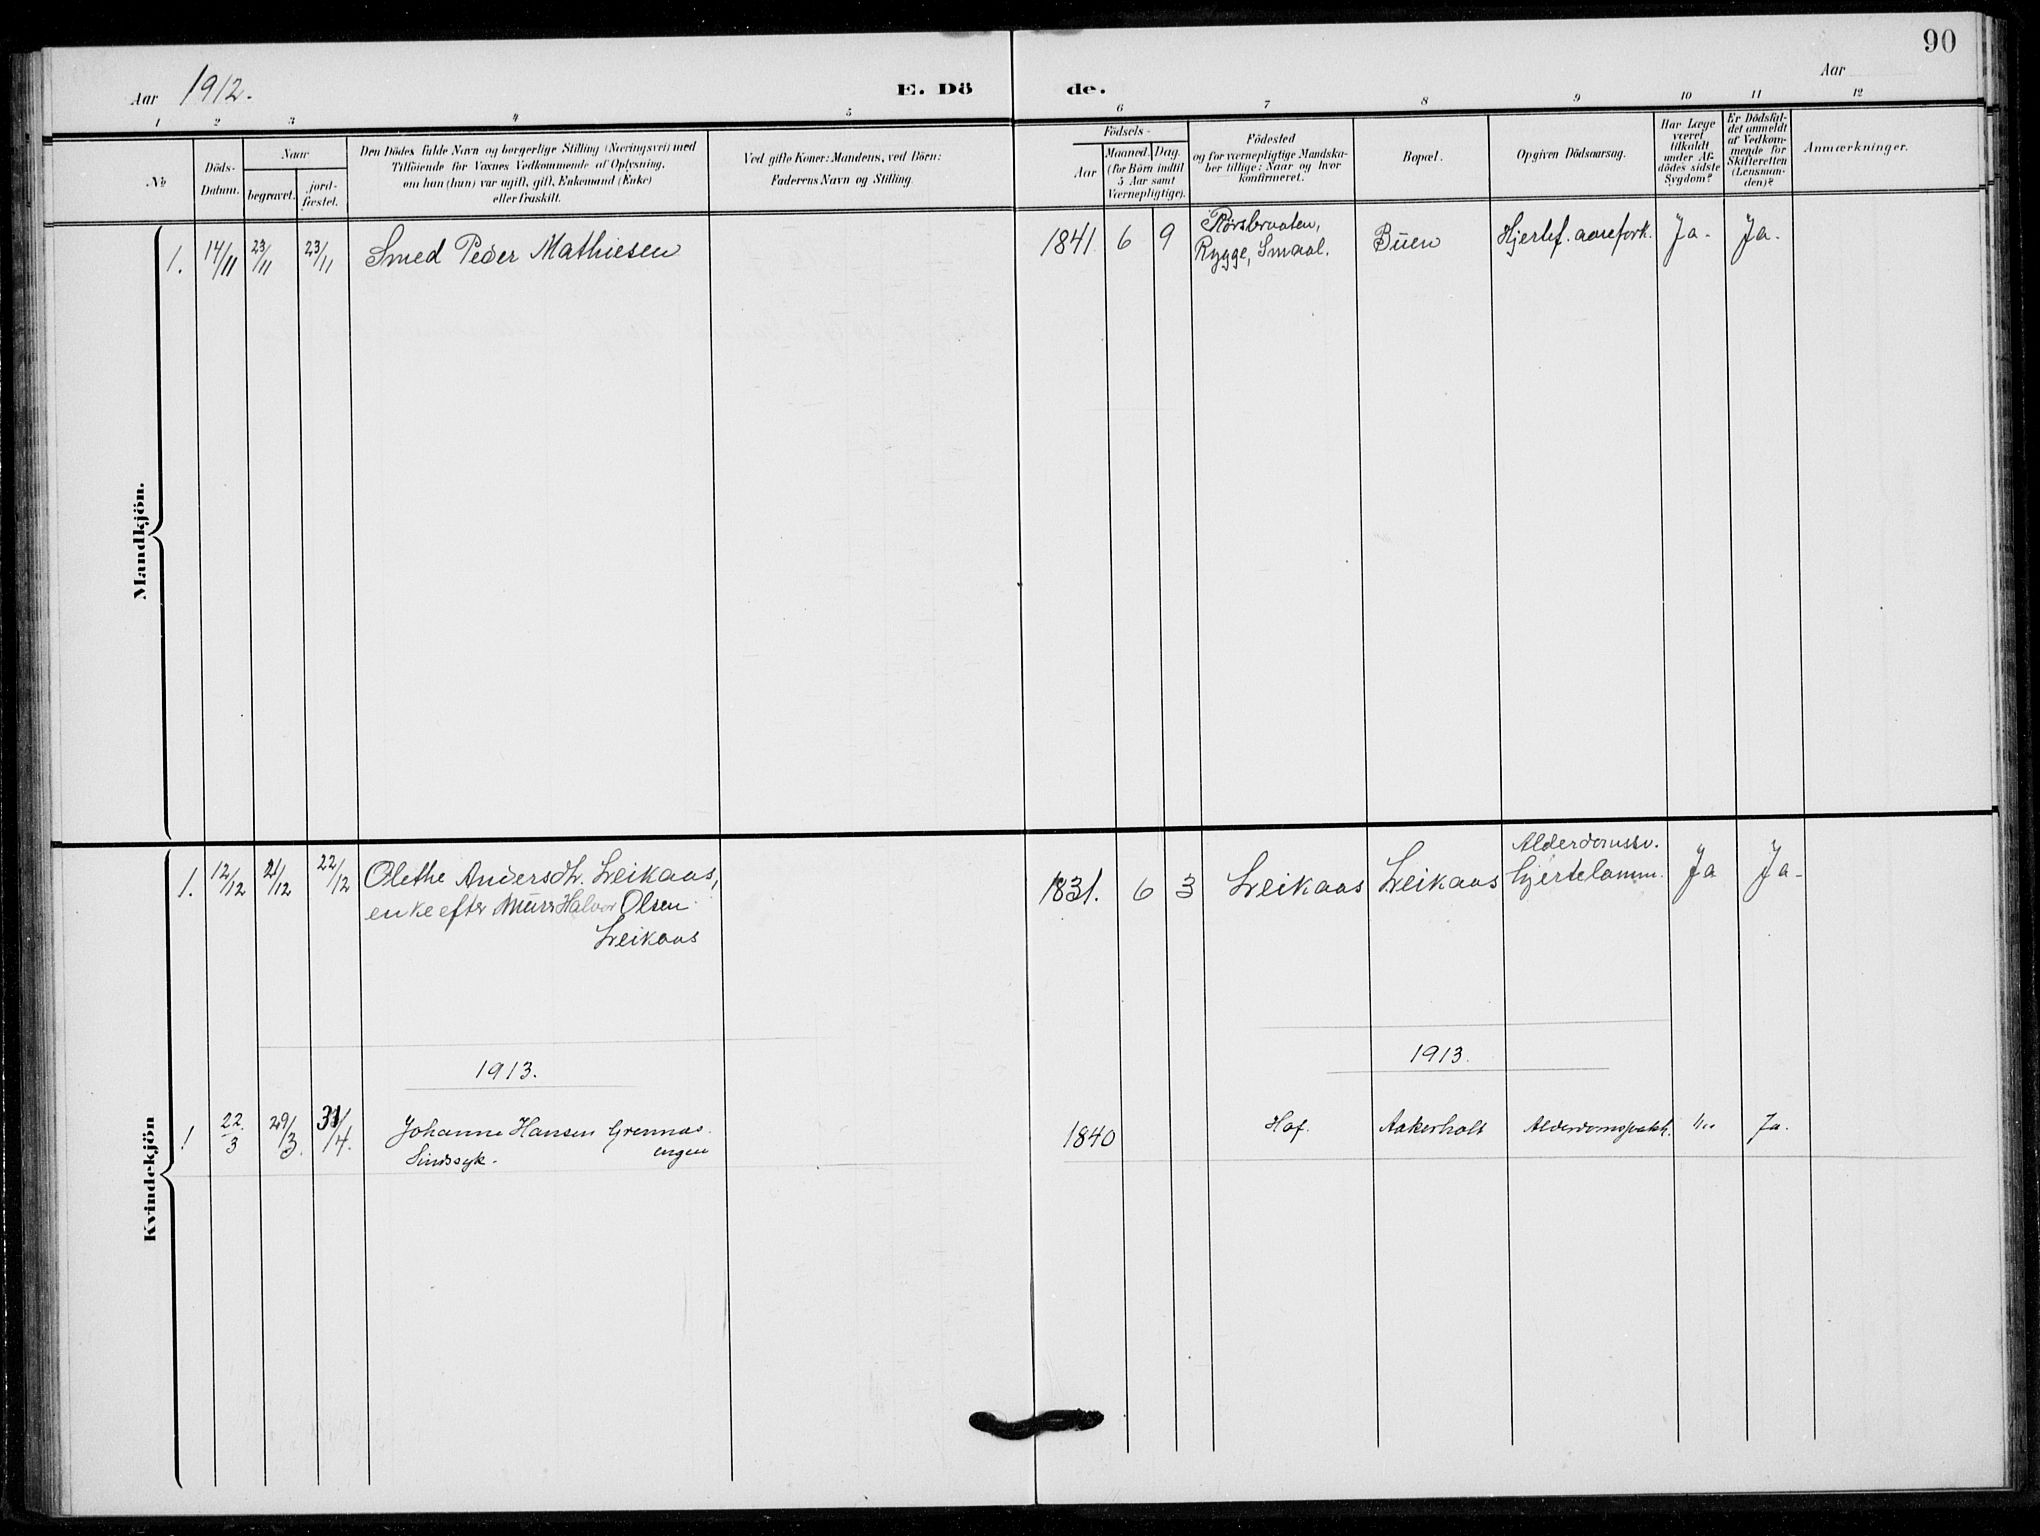 90
Aar 1912.
E. Dö
de.
Aar
1 2 3 4 5 6 7 8 9 10 11 12
No
Döds-
Datum.
Naar
begravet.
jord-
fæstet.
Den Dödes fulde Navn og borgerlige Stilling (Næringsvei) med
Tilföiende for Voxnes Vedkommende af Oplysning,
om han (hun) var ugift, gift, Enkemand (Enke)
eller fraskilt.
Ved gifte Koner: Mandens, ved Börn:
Faderens Navn og Stilling.
Födsels-
Aar
Maaned. Dag.
(for Börn indtil
5 Aar samt
Værnepligtige).
Födested
og for værnepligtige Mandska-
ber tillige: Naar og hvor
konfirmeret.
Bopæl.
Opgiven Dödsaarsag.
Har Læge
været
tilkaldt
under Af-
dödes sidste
Sygdom?
Er Dödsfal-
det anmeldt
af Vedkom-
mende for
Skifteretten
(Lensman-
den)?
Anmærkninger.
Mandkjön.
1. 14/11 23/11 23/11 Smed Peder Mathiesen 1841 6 9 Rørsbraaten, Rygge, Smaal. Buen Hjertef. aarefork. Ja. Ja.
Kvindekjön
1. 12/12 21/12 22/12 Olethe Andersdt. Leikaas, 1831. 6 3 Leikaas Leikaas Alderdomssv. Hjertelamm. Ja Ja-
enke efter Murer Halvor Olsen
Leikaas
1913. 1913.
1 22/3 29/3. 31/4. Johanne Hansen Grennes- 1840 Hof. Aakerholt Ja.
engen
Sindssyk.